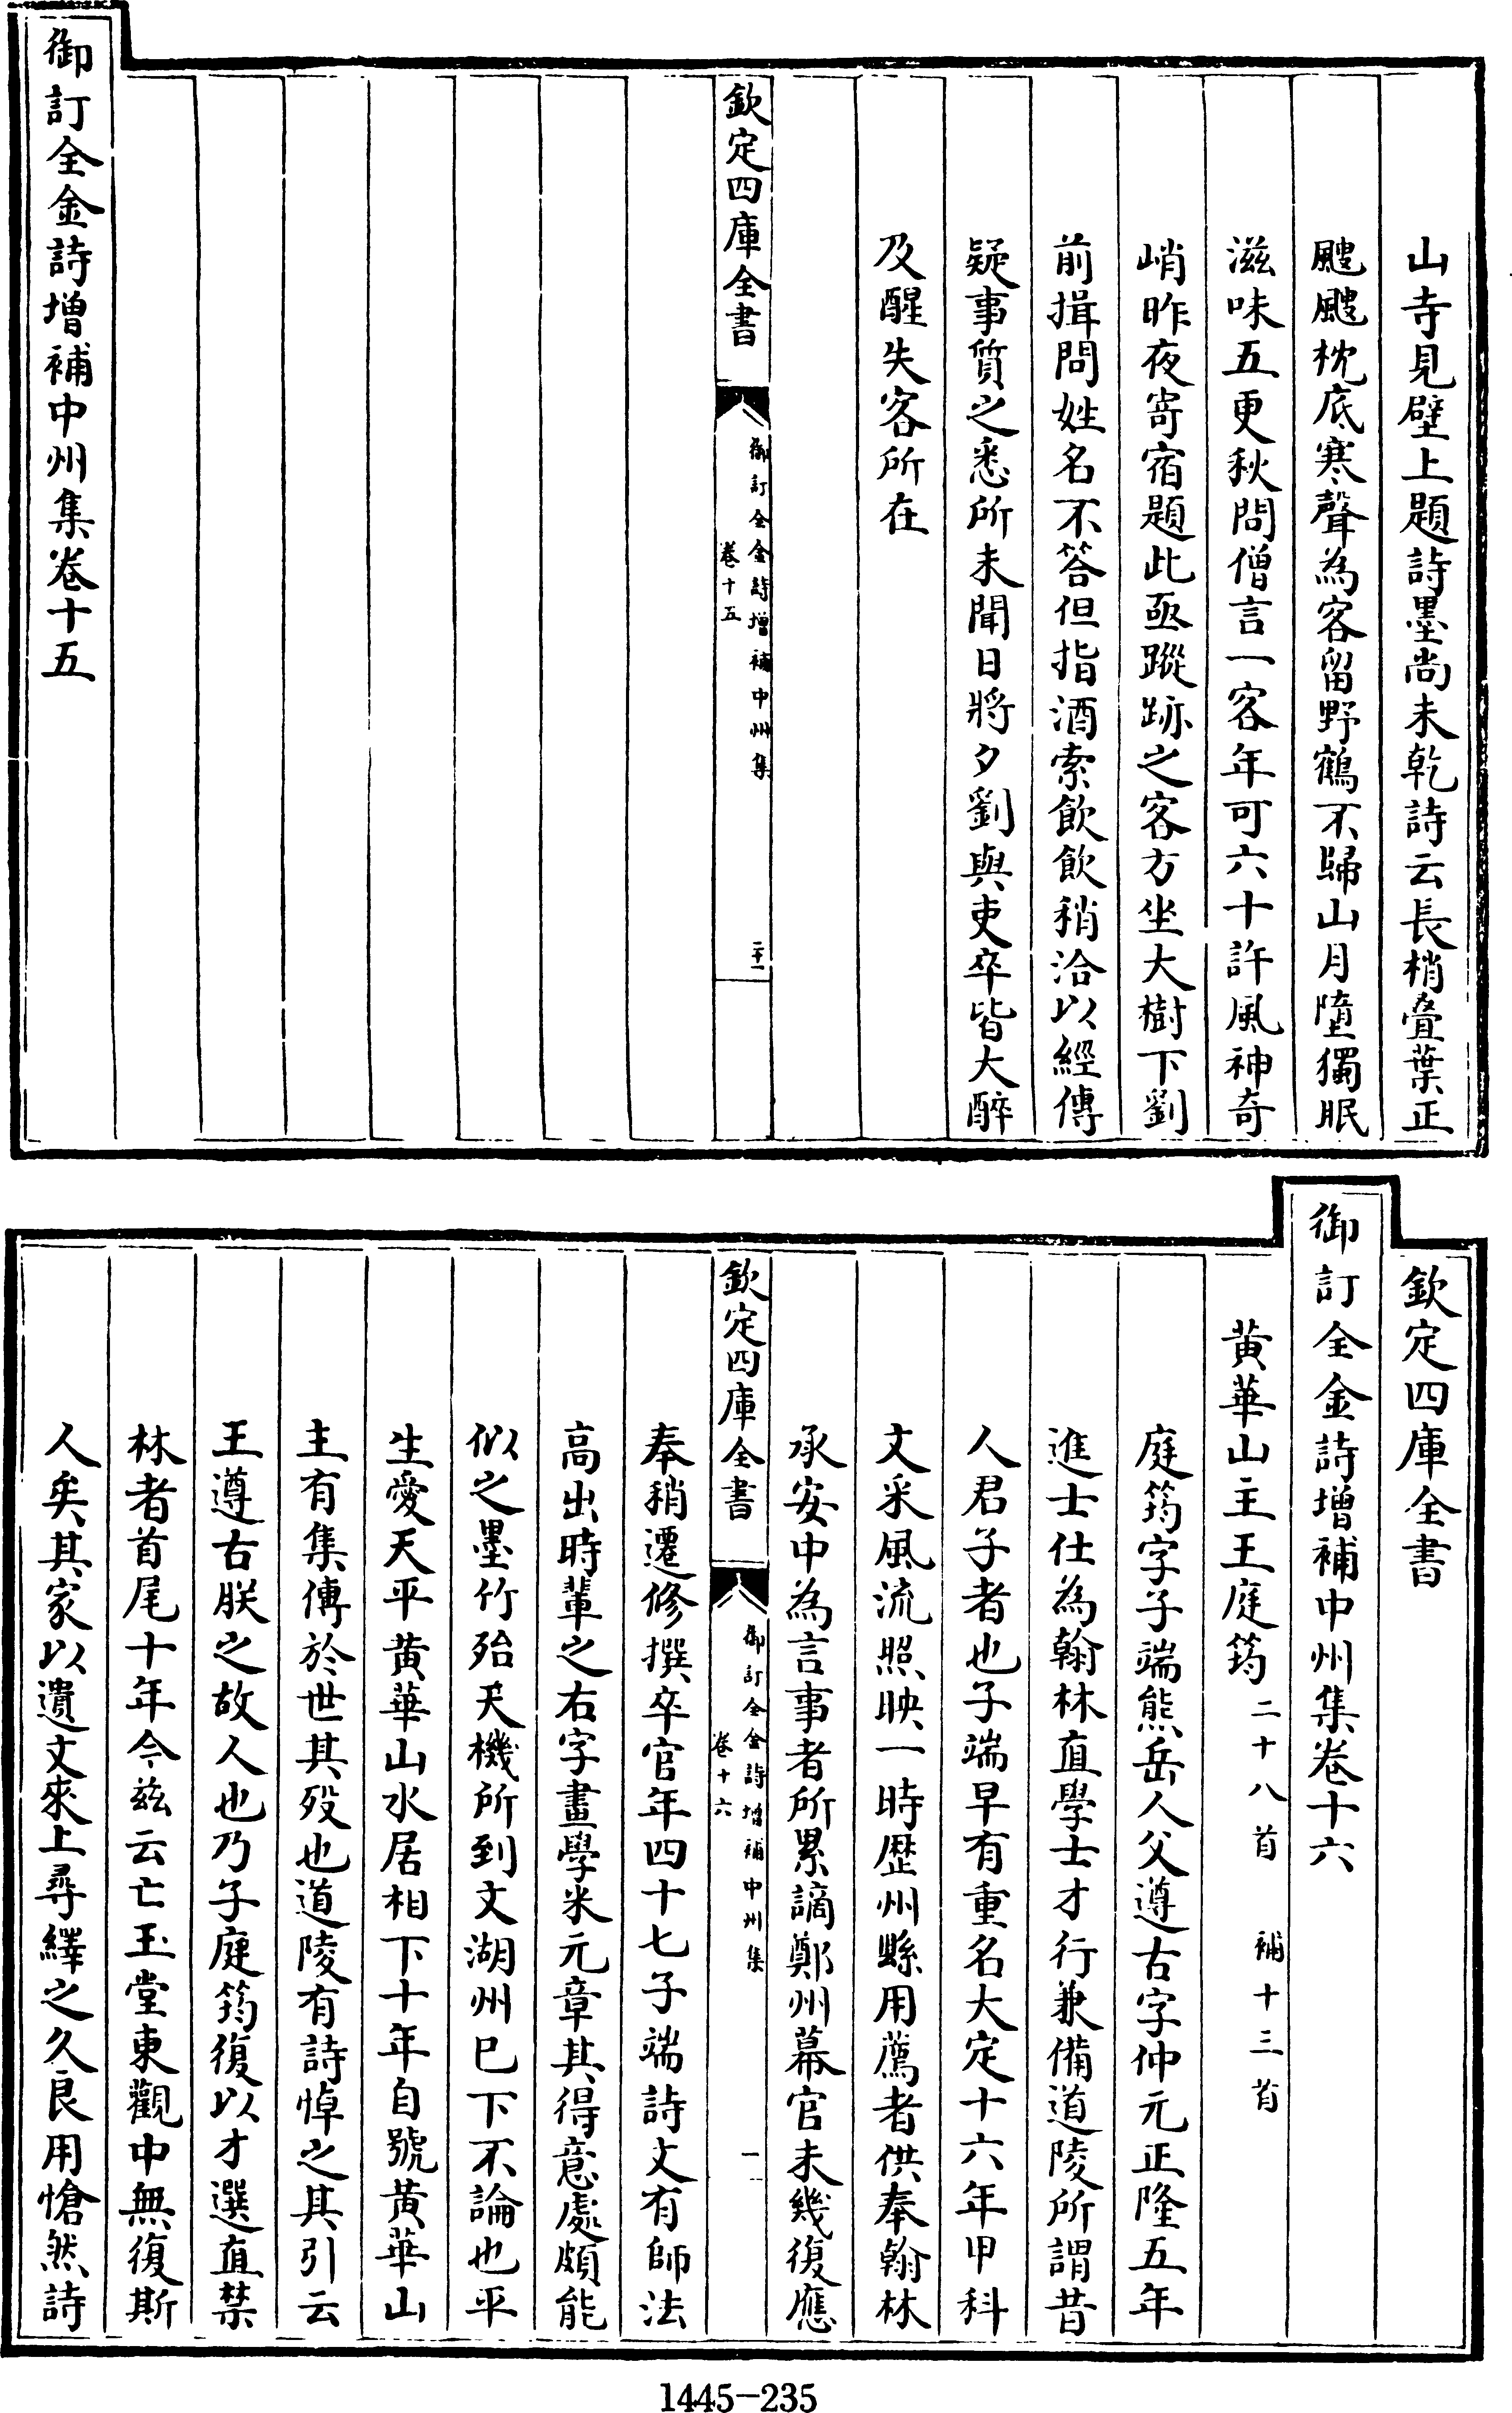 山寺見壁上題詩墨尚未乾詩云長梢疊葉正
颼颼枕底寒聲為客留野鶴不歸山月墮獨眠
滋味五更秋問僧言一客年可六十許風神奇
峭昨夜寄宿題此亟蹤跡之客方坐大樹下劉
前揖問姓名不答但指酒索飲飲稍洽以經傳
疑事質之悉所未聞日將夕劉與吏卒皆大醉
及醒失客所在
欽定四庫全書
御訂全金詩增補中州集
卷十五
二十一
御訂全金詩增補中州集卷十五
欽定四庫全書
御訂全金詩增補中州集卷十六
黃華山主王庭筠二十八首 補十三首
庭筠字子端熊岳人父遵古字仲元正隆五年
進士仕為翰林直學士才行兼備道陵所謂昔
人君子者也子端早有重名大定十六年甲科
文采風流照映一時歷州縣用薦者供奉翰林
承安中為言事者所累謫鄭州幕官未幾復應
欽定四庫全書
御訂全金詩增補中州集
卷十六
一
奉稍遷修撰卒官年四十七子端詩文有師法
高出時輩之右字畫學米元章其得意處頗能
似之墨竹殆天機所到文湖州已下不論也平
生愛天平黃華山水居相下十年自號黃華山
主有集傳於世其歿也道陵有詩悼之其引云
王遵古朕之故人也乃子庭筠復以才選直禁
林者首尾十年今茲云亡玉堂東觀中無復斯
人矣其家以遺文來上尋繹之久良用愴然詩
1445-235